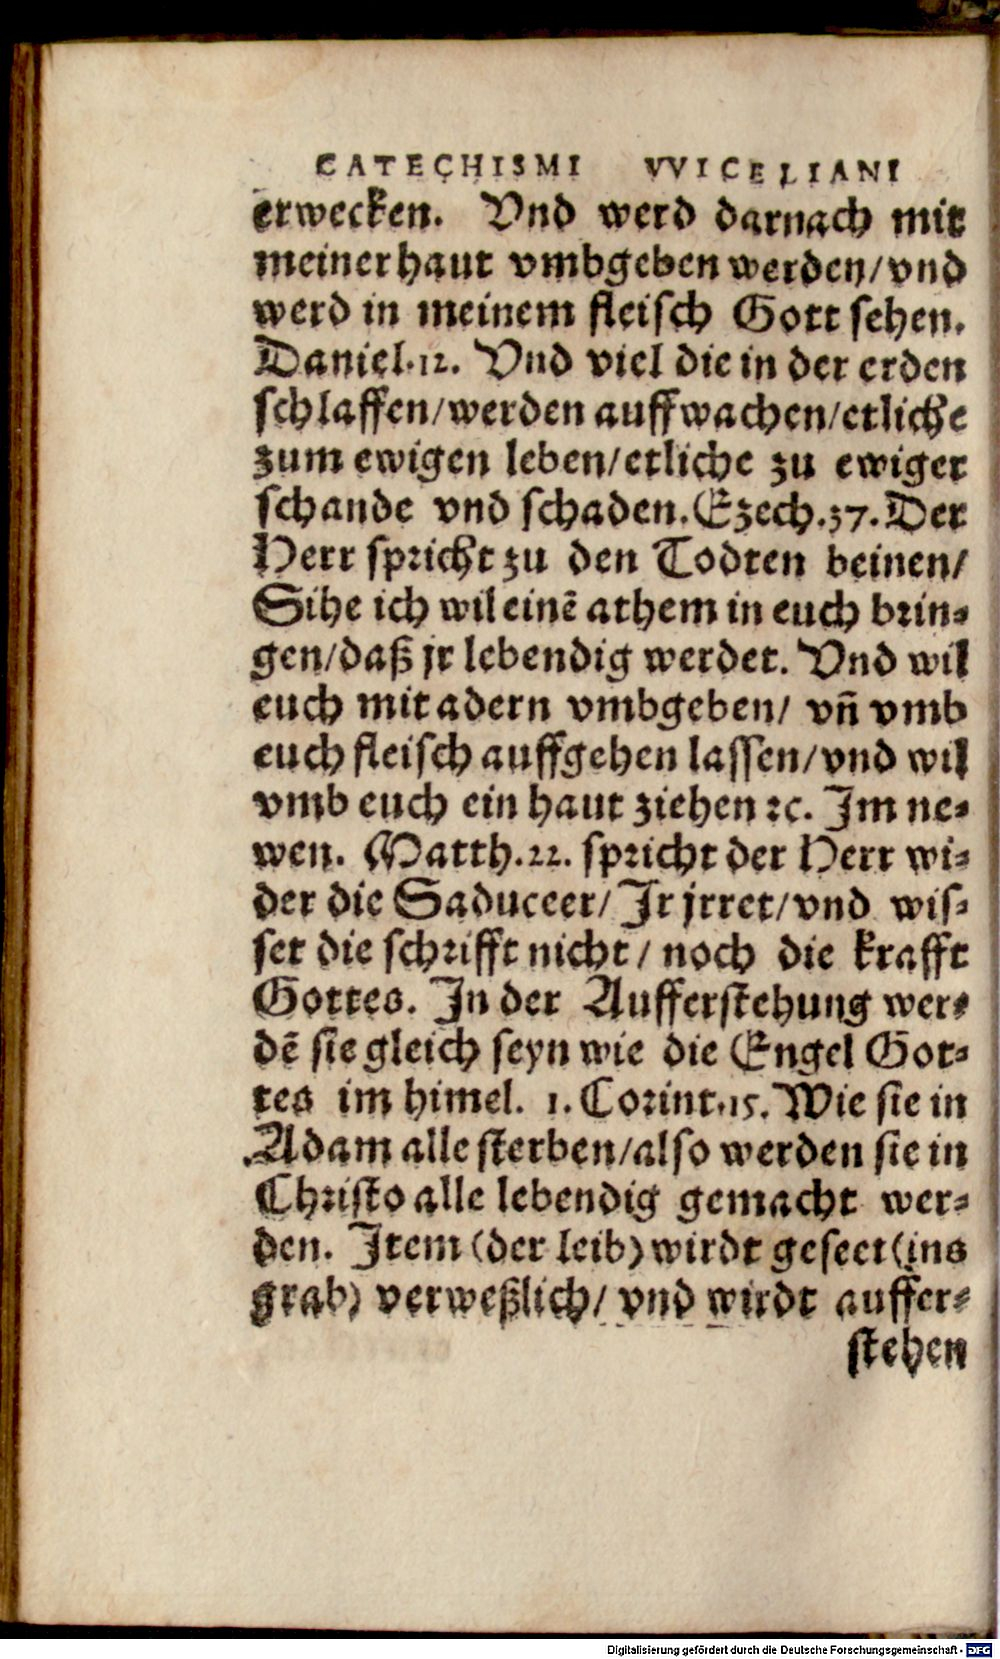 CATECHISMI VVICELIANI
erwecken. Vnd werd darnach mit
meiner haut vmbgeben werden/vnd
werd in meinem fleisch Gott sehen.
Daniel.12. Vnd viel die in der erden
schlaffen/werden auffwachen/etliche
zum ewigen leben/etliche zu ewiger
schande vnd schaden. Ezech.37. Der
Herr spricht zu den Todten beinen/
Sihe ich wil einē athem in euch brin-
gen/daß jr lebendig werdet. Vnd wil
euch mit adern vmbgeben/ vn̄ vmb
euch fleisch auffgehen lassen/vnd wil
vmb euch ein haut ziehen ꝛc. Im ne-
wen. Matth.22. spricht der Herr wi-
der die Saduceer/ Ir jrret/vnd wis-
set die schrifft nicht/ noch die krafft
Gottes. In der Aufferstehung wer-
dē sie gleich seyn wie die Engel Got-
tes im himel. 1. Corint.15. Wie sie in
Adam alle sterben/also werden sie in
Christo alle lebendig gemacht wer-
den. Item (der leib) wirdt geseet (ins
grab) verweßlich/ vnd wirdt auffer-
stehen
Digitalisierung gefördert durch die Deutsche Forschungsgemeinschaft - DFG